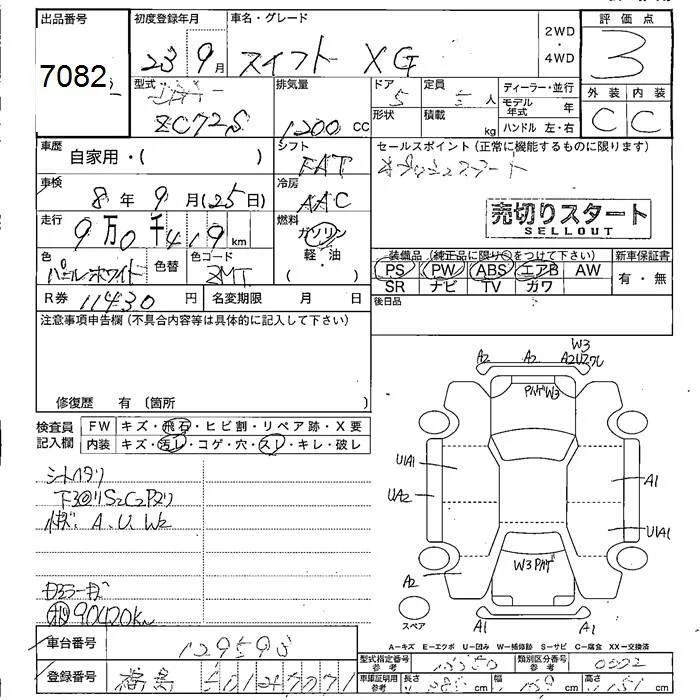 出品番号
7082
初度登録年月
23 9月
車名・グレード
スイフト XG
2WD
・
4WD
評価点
3
外装 内装
C C
型式
ZC72S
排気量
1200 cc
ドア
5
形状
定員
人
積載
kg
ディーラー・並行
モデル年式 年
ハンドル 左・右
車歴
自家用・( )
シフト
FAT
セールスポイント (正常に機能するものに限ります)
売切りスタート
SELLOUT
車検
8年 9月(25日)
冷房
AAC
走行
9万0千419km
燃料
ガソリン
軽・油
( )
色
パールホワイト
色替
色コード
ZMT
装備品(純正品に限り○をつけて下さい)
新車保証書
PS PW ABS エアB AW
有・無
SR ナビ TV ガワ
R券 11430円
名変期限 月 日
後日品
注意事項申告欄(不具合内容等は具体的に記入して下さい)
修復歴 有 (箇所 )
検査員
記入欄
FW キズ・飛石・ヒビ割・リペア跡・X要
内装 キズ・汚レ・コゲ・穴・スレ・キレ・破レ
W3
A2 A2
W3
U1A1
UA2
A1
U1A1
W3
A2
スペア
A1 A1
A. U. W2
90420Km
A−キズ E−エクボ U−凹み W−補修跡 S−サビ C−腐食 XX−交換済
車台番号
129595
型式指定番号
参考
類別区分番号
参考
登録番号
福島
車庫証明用
参考
長さ
cm
幅
cm
高さ
cm